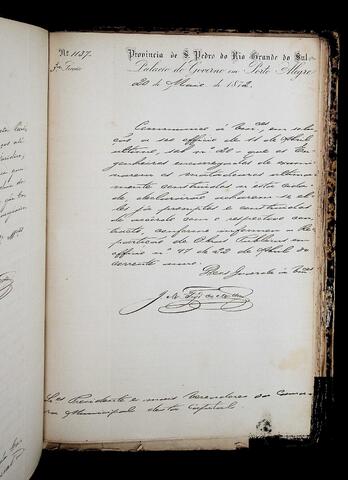 Nº 1137.
Provincia de S. Pedro do Rio Grande do Sul
3ª Secção
Palacio do Governo em Porto Alegre
20 de Maio de 1872.
Communico á Vmces, em solu
ção a seo officio de 11 de Abril
ultimo, sob nº 20, que os En
genheiros encarregados de exami
narem os mictadouros ultima
mente construidos n'esta cida
de, declararão acharem-se el
les já promptos e construidos
de accordo com o respectivo con
tracto, conforme informou a Re
partição de Obras Publicas em
officio nº 97 de 22 de Abril do
corrente anno.
Deos Guarde a Vmces
Srs Presidente e mais Vereadores da Cama
ra Municipal desta Capital